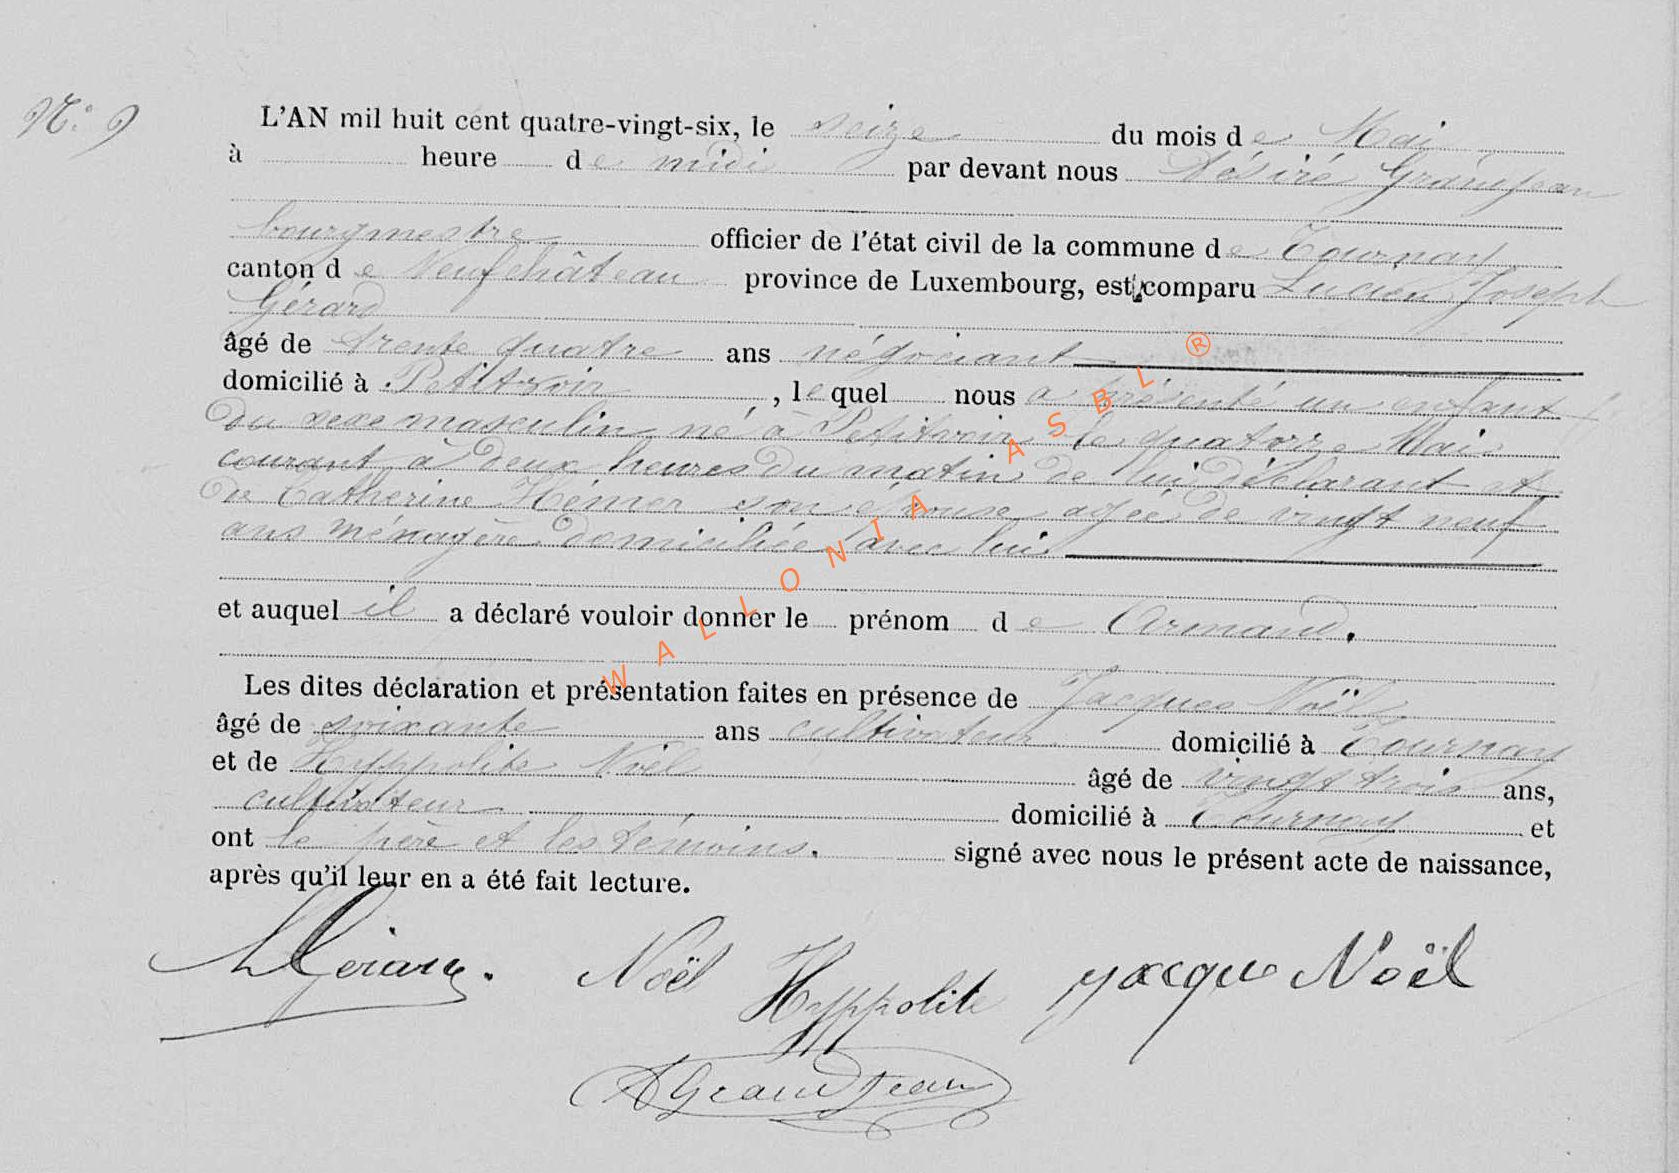 N.° 9
L'AN mil huit cent quatre-vingt-six, le seize du mois de Mai
à heure de midi par devant nous Désiré Grandjean
bourgmestre officier de l'état civil de la commune de Tournay
canton de Neufchâteau province de Luxembourg, est comparu Lucien Joseph
Gérard
âgé de trente quatre ans négociant
domicilié à Petitvoir, lequel nous a présenté un enfant
du sexe masculin né à Petitvoir le quatorze Mai
courant à deux heures du matin de lui déclarant et
de Catherine Hémer son épouse agée de vingt neuf
ans ménagère domiciliée avec lui.
et auquel il a déclaré vouloir donner le prénom de Armand.
Les dites déclaration et présentation faites en présence de Jacques Noël
âgé de soixante ans cultivateur domicilié à Tournay
et de Hyppolite Noël âgé de vingt trois ans,
cultivateur domicilié à Tournay et
ont le père et les témoins. signé avec nous le présent acte de naissance,
après qu'il leur en a été fait lecture.
L Gérard. Noël Hyppolite Jacque Noël
D Grandjean
WALLONIA ASBL ®